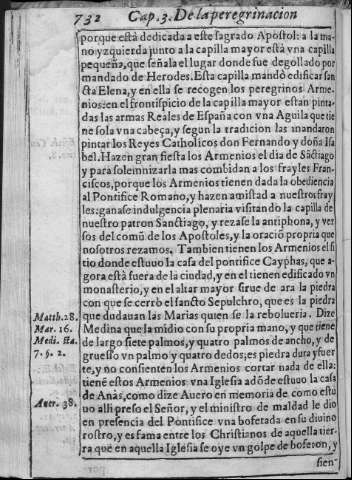 732 Cap. 3. De la peregrinacion
porque està dedicada a este sagrado Apostol: a la ma
no yzquierda junto a la capilla mayor està vna capilla
pequeña, que señala el lugar donde fue degollado por
mandado de Herodes. Esta capilla mandò edificar san
cta Elena, y en ella se recogen los peregrinos Arme-
nios: en el frontispicio de la capilla mayor estan pinta-
das las armas Reales de España con vna Aguila que tie
ne sola vna cabeça, y segun la tradicion las mandaron
pintar los Reyes Catholicos don Fernando y doña Isa
bel. Hazen gran fiesta los Armenios el dia de Sãctiago
y para solemnizarla mas combidan a los frayles Fran-
ciscos, porque los Armenios tienen dada la obediencia
al Pontifice Romano, y hazen amistad a nuestros fray
les: ganase indulgencia plenaria visitando la capilla de
nuestro patron Sanctiago, y rezase la antiphona, y ver
sos del comũ de los Apostoles, y la oraciõ propria que
nosotros rezamos. Tambien tienen los Armenios el si
tio donde estuuo la casa del pontifice Cayphas, que a-
gora està fuera de la ciudad, y en el tienen edificado vn
monasterio, y en el altar mayor sirue de ara la piedra
con que se cerrò el sancto Sepulchro, que es la piedra
Matth. 28. que dudauan las Marias quien se la rebolueria. Dize
Mar. 16. Medina que la midio con su propria mano, y que tiene
Medi. sta. de largo siete palmos, y quatro palmos de ancho, y de
7. §. 2. gruesso vn palmo y quatro dedos; es piedra dura y fuer
te, y no consienten los Armenios cortar nada de ella:
tienẽ estos Armenios vna Iglesia adõde estuuo la casa
Auer. 38. de Anàs, como dize Auero en memoria de como estu
uo alli preso el Señor, y el ministro de maldad le dio
en presencia del Pontifice vna bofetada en su diuino
rostro, y es fama entre los Christianos de aquella tier-
ra que en aquella Iglesia se oye vn golpe de bofeton, y
sien-